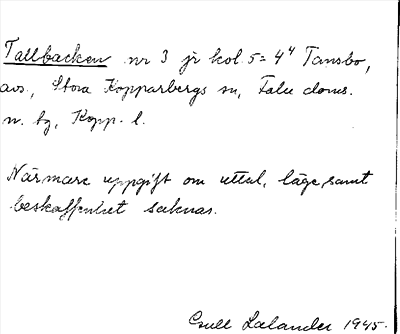 Tallbacken nr 3 jr kol. 5 = 4⁴ Tansbo,
avs., Stora Kopparbergs sn, Falu doms.
n. tg, Kopp. l.
Närmare uppgift om uttal, läge, samt
beskaffenhet saknas.
Lalander 1945.